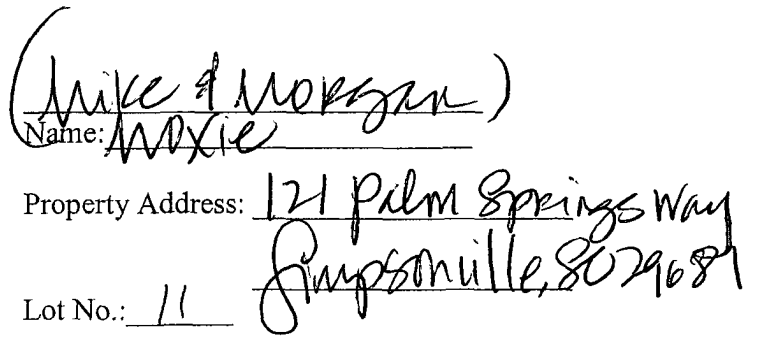 (Mike & Morgan)
Name: Moxie
Property Address: 121 Palm Springs Way
Simpsonville, SC 29681
Lot No.: 11